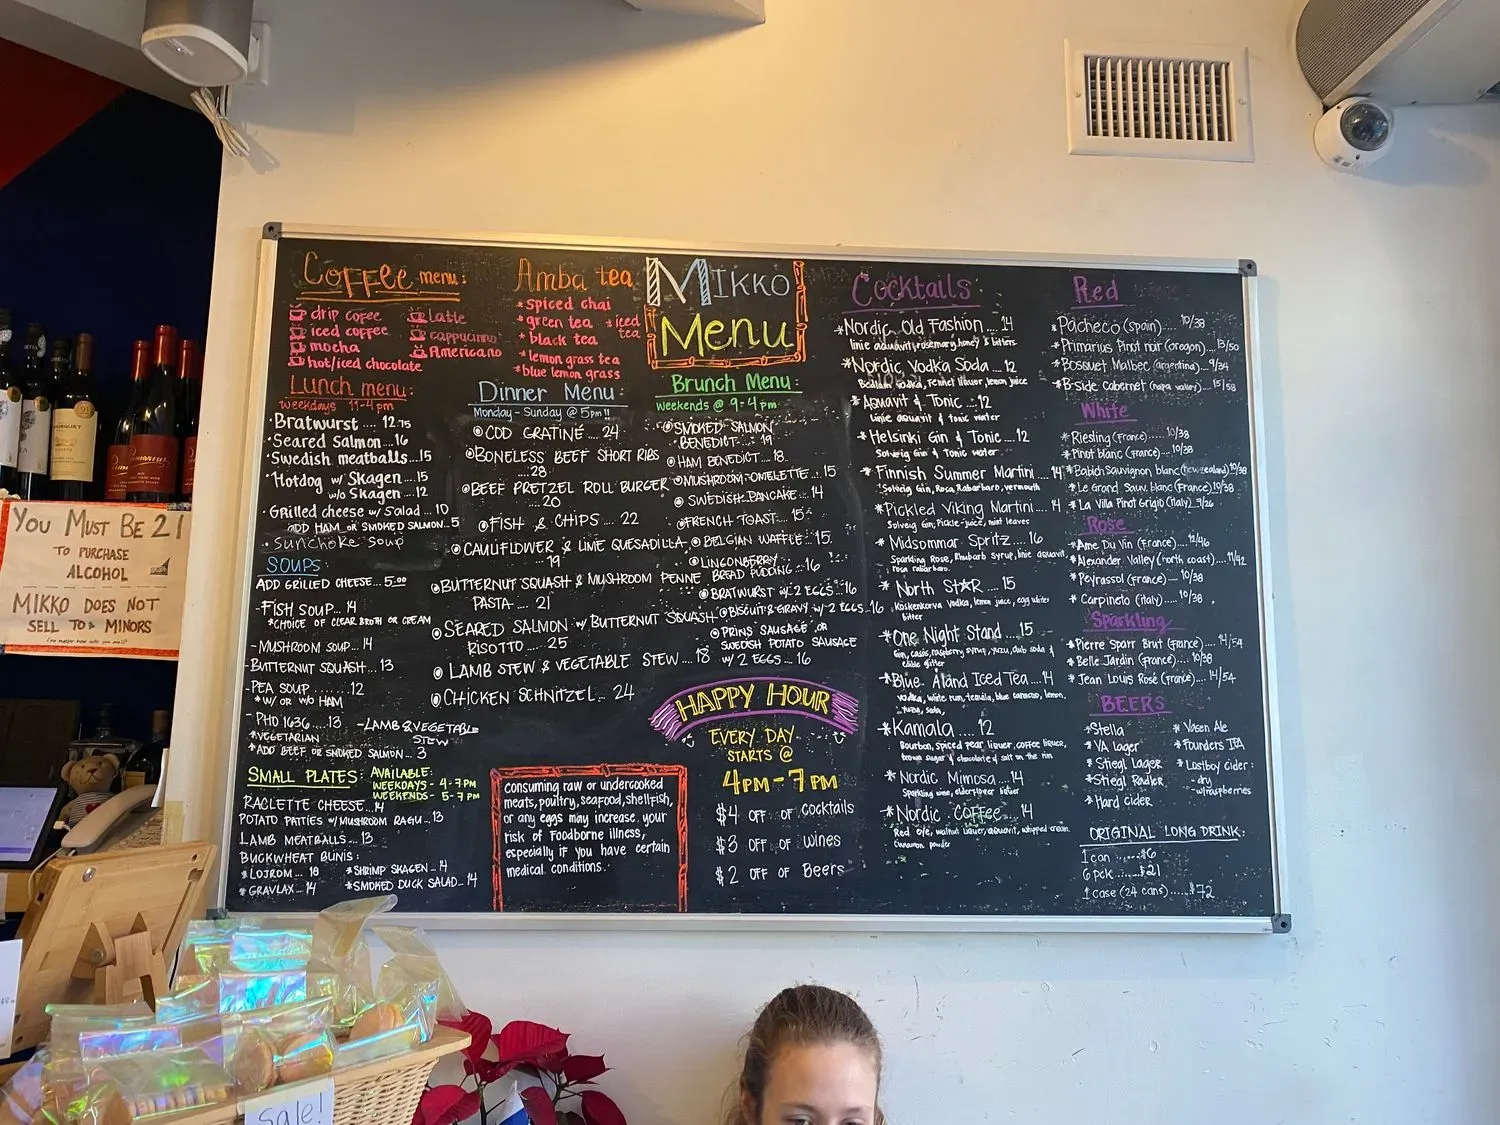 Coffee menu:
drip cofee
iced coffee
mocha
hot/iced chocolate
Latte
cappuccino
Americano
Amba tea
* spiced chai
* green tea
* iced tea
* black tea
* lemon grass tea
* blue lemon grass
MIKKO
Menu
Lunch menu:
weekdays 11-4pm
Bratwurst .... 12.75
Seared Salmon..16
Swedish meatballs...15
Hotdog w/ Skagen....15
w/o Skagen .... 12
Grilled cheese w/ Salad....10
ADD HAM or SMOKED SALMON..5
Sunchoke soup
SOUPS:
ADD GRILLED CHEESE....5.00
- FISH SOUP.. 14
*CHOICE OF CLEAR BROTH OR CREAM
- MUSHROOM SOUP...14
- BUTTERNUT SQUASH... 13
- PEA SOUP.........12
*W/ OR W/O HAM
- PHO 1636....13
*VEGETARIAN
*ADD BEEF OR SMOKED SALMON... 3
- LAMB & VEGETABLE
STEW
SMALL PLATES:
AVAILABLE:
WEEKDAYS - 4-7PM
WEEKENDS - 5-7PM
RACLETTE CHEESE..14
POTATO PATTIES w/ MUSHROOM RAGU..13
LAMB MEATBALLS.. 13
BUCKWHEAT BLINIS:
* LOJROM... 18
* GRAVLAX.. 14
* SHRIMP SKAGEN.. 14
* SMOKED DUCK SALAD.. 14
Dinner Menu:
Monday - Sunday @ 5pm!!
COD GRATINÉ.... 24
BONELESS BEEF SHORT RIBS
.... 28
BEEF PRETZEL ROLL BURGER
.... 20
FISH & CHIPS .... 22
CAULIFLOWER & LIME QUESADILLA
.... 19
BUTTERNUT SQUASH & MUSHROOM PENNE
PASTA .... 21
SEARED SALMON w/ BUTTERNUT SQUASH
RISOTTO .... 25
LAMB STEW & VEGETABLE STEW....18
CHICKEN SCHNITZEL ... 24
consuming raw or undercooked
meats, poultry, seafood, shellfish,
or any eggs may increase your
risk of foodborne illness,
especially if you have certain
medical conditions.
Brunch Menu:
weekends @ 9-4pm
SMOKED SALMON
BENEDICT... 19
HAM BENEDICT...18
MUSHROOM OMELETTE... 15
SWEDISH PANCAKE... 14
FRENCH TOAST.... 15
BELGIAN WAFFLE... 15
LINGONBERRY
BREAD PUDDING...16
BRATWURST w/ 2 EGGS...16
BISCUIT & GRAVY w/ 2 EGGS..16
PRINS SAUSAGE OR
SWEDISH POTATO SAUSAGE
w/ 2 EGGS... 16
HAPPY HOUR
EVERY DAY
STARTS @
4PM - 7PM
$4 OFF OF cocktails
$3 OFF OF wines
$2 OFF OF Beers
Cocktails:
* Nordic Old Fashion .... 14
linie aquavit, rosemary, honey & bitters
* Nordic Vodka Soda .... 12
vodka, fennel liquor, lemon juice
* Aquavit & Tonic ...12
linie aquavit & tonic water
* Helsinki Gin & Tonic ...12
Solveig Gin & Tonic water
* Finnish Summer Martini .... 14
Solveig Gin, Rosa Rabarbaro, vermouth
* Pickled Viking Martini.... 14
Solveig Gin, Pickle-juice, mint leaves
* Midsommar Spritz .... 16
Sparkling Rose, Rhubarb syrup, linie aquavit
rosa rabarbaro
* North STAR .... 15
Koskenkorva vodka, lemon juice, egg white
bitter
* One Night Stand .... 15
Gin, cassis, raspberry syrup, yuzu, club soda &
edible glitter
* Blue Åland Iced Tea....14
vodka, white rum, tequila, blue curacao, lemon,
yuzu, soda
* Kamala .... 12
Bourbon, spiced pear liquer, coffee liquer,
brown sugar & chocolate & salt on the rim
* Nordic Mimosa .... 14
Sparkling wine, elderflower bitter
* Nordic Coffee .... 14
Red eye, walnut liquer, aquavit, whipped cream
Cinnamon powder
Red
* Pacheco (Spain) .... 10/38
* Primarius Pinot noir (oregon).... 13/50
* Bosquet Malbec (argentina).. 9/34
* B-side Cabernet (napa valley).. 15/58
White
* Riesling (France)..... 10/38
* Pinot blanc (France).... 10/38
* Babich Sauvignon blanc (new zealand) 10/38
* Le Grand Sauv. blanc (France) 10/38
* La Villa Pinot Grigio (Italy).. 7/26
Rose
* Ame Du Vin (France) .... 12/46
* Alexander Valley (north coast).... 11/42
* Peyrassol (France).... 10/38
* Carpineto (Italy).... 10/38
Sparkling
* Pierre Sparr Brut (France).... 14/54
* Belle Jardin (France).... 10/38
* Jean Louis Rosé (France)..... 14/54
BEERS
* Stella
* VA Lager
* Stiegl Lager
* Stiegl Radler
* Hard cider
* Vasen Ale
* Founders IPA
* Lostboy cider:
- dry
- w/raspberries
ORIGINAL LONG DRINK:
1 can .......$6
6 pck ......$21
1 case (24 cans)......$72
YOU MUST BE 21
TO PURCHASE
ALCOHOL
MIKKO DOES NOT
SELL TO MINORS
Sale!